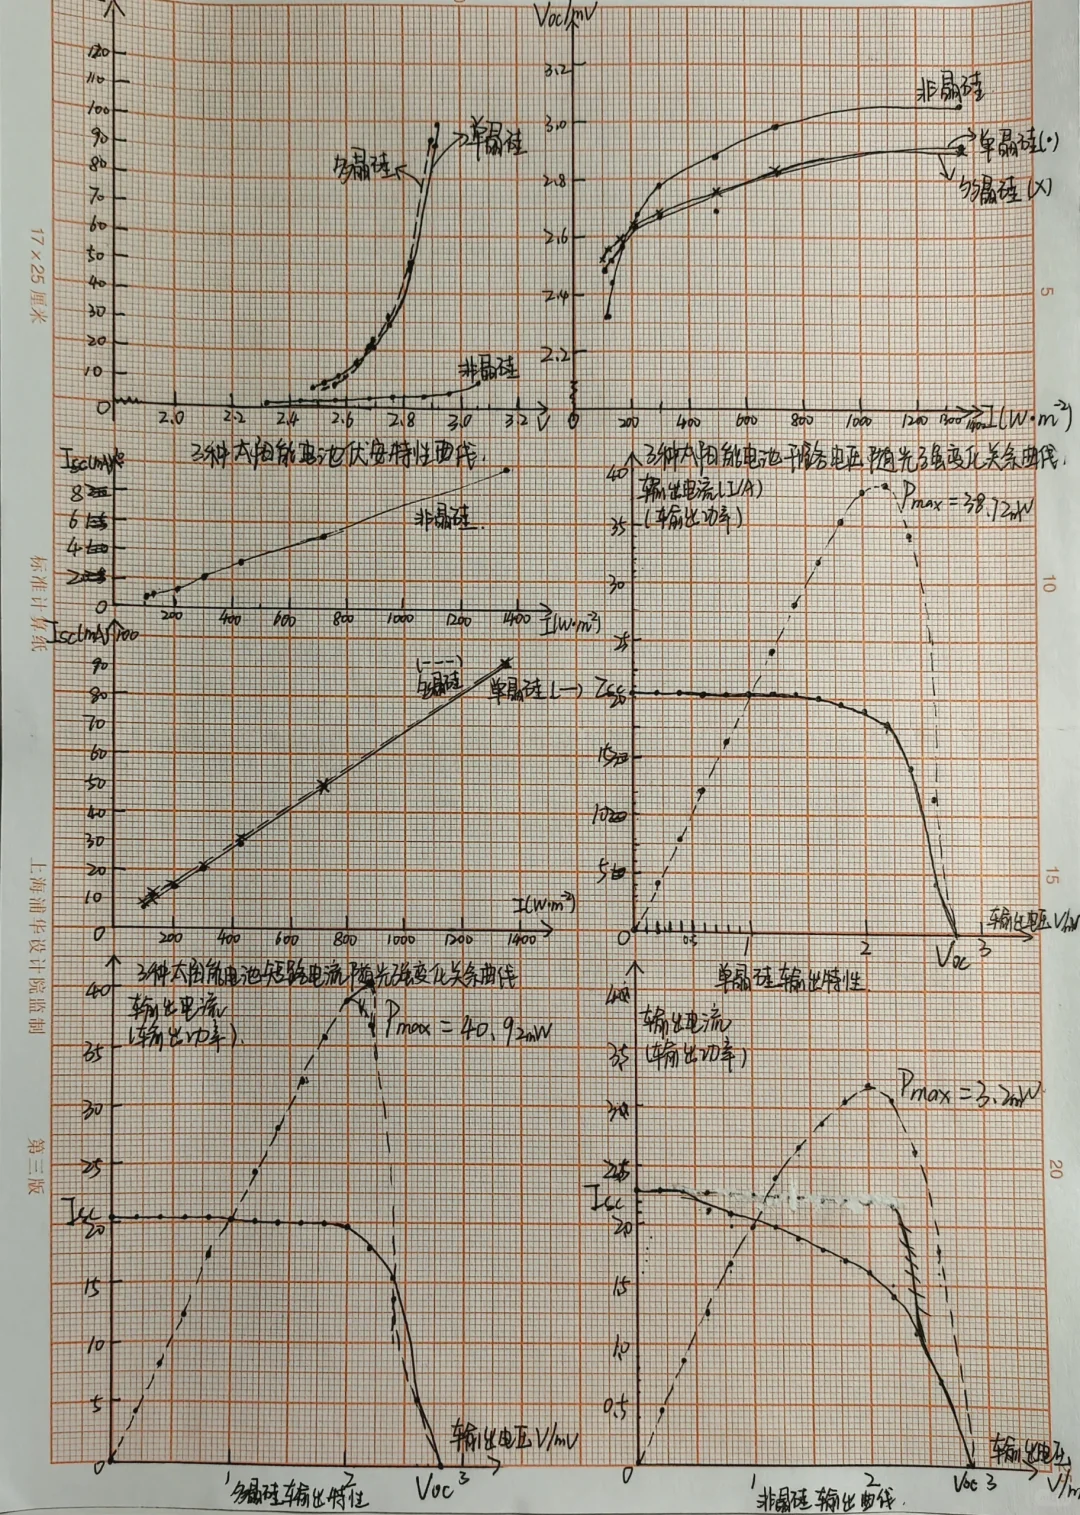 120
110
100
90
80
70
60
50
40
30
20
10
0
2.0 2.2 2.4 2.6 2.8 3.0 3.2 V
多晶硅
单晶硅
非晶硅
3种太阳能电池伏安特性曲线.
Voc/mV
3.2
3.0
2.8
2.6
2.4
2.2
0 200 400 600 800 1000 1200 1300 1400 I(W·m⁻²)
非晶硅
单晶硅(·)
多晶硅(X)
3种太阳能电池开路电压随光强变化关系曲线.
Isc(mA)
8
6
4
2
0
200 400 600 800 1000 1200 1400 I(W·m²)
非晶硅.
Isc(mA) 100
90
80
70
60
50
40
30
20
10
0
200 400 600 800 1000 1200 1400
I(W·m⁻²)
(---)
多晶硅
单晶硅(—)
3种太阳能电池短路电流随光强变化关系曲线
40
35
30
25
Isc
20
15
10
5
0 0.5 1 2 3
输出电流(I/A)
(输出功率)
Pmax=38.72mW
Voc
输出电压V/mV
单晶硅输出特性.
40
35
30
25
Isc
20
15
10
5
0 1 2 3
输出电流
(输出功率).
Pmax=40.92mW
输出电压V/mV
Voc
多晶硅输出特性
输出电流
(输出功率)
Pmax=3.2mW
Isc
20
15
1.0
0.5
0 1 2 3
Voc
输出电压
非晶硅输出曲线.
17×25厘米
标准计算纸
上海浦华设计院监制
第三版
5
10
15
20